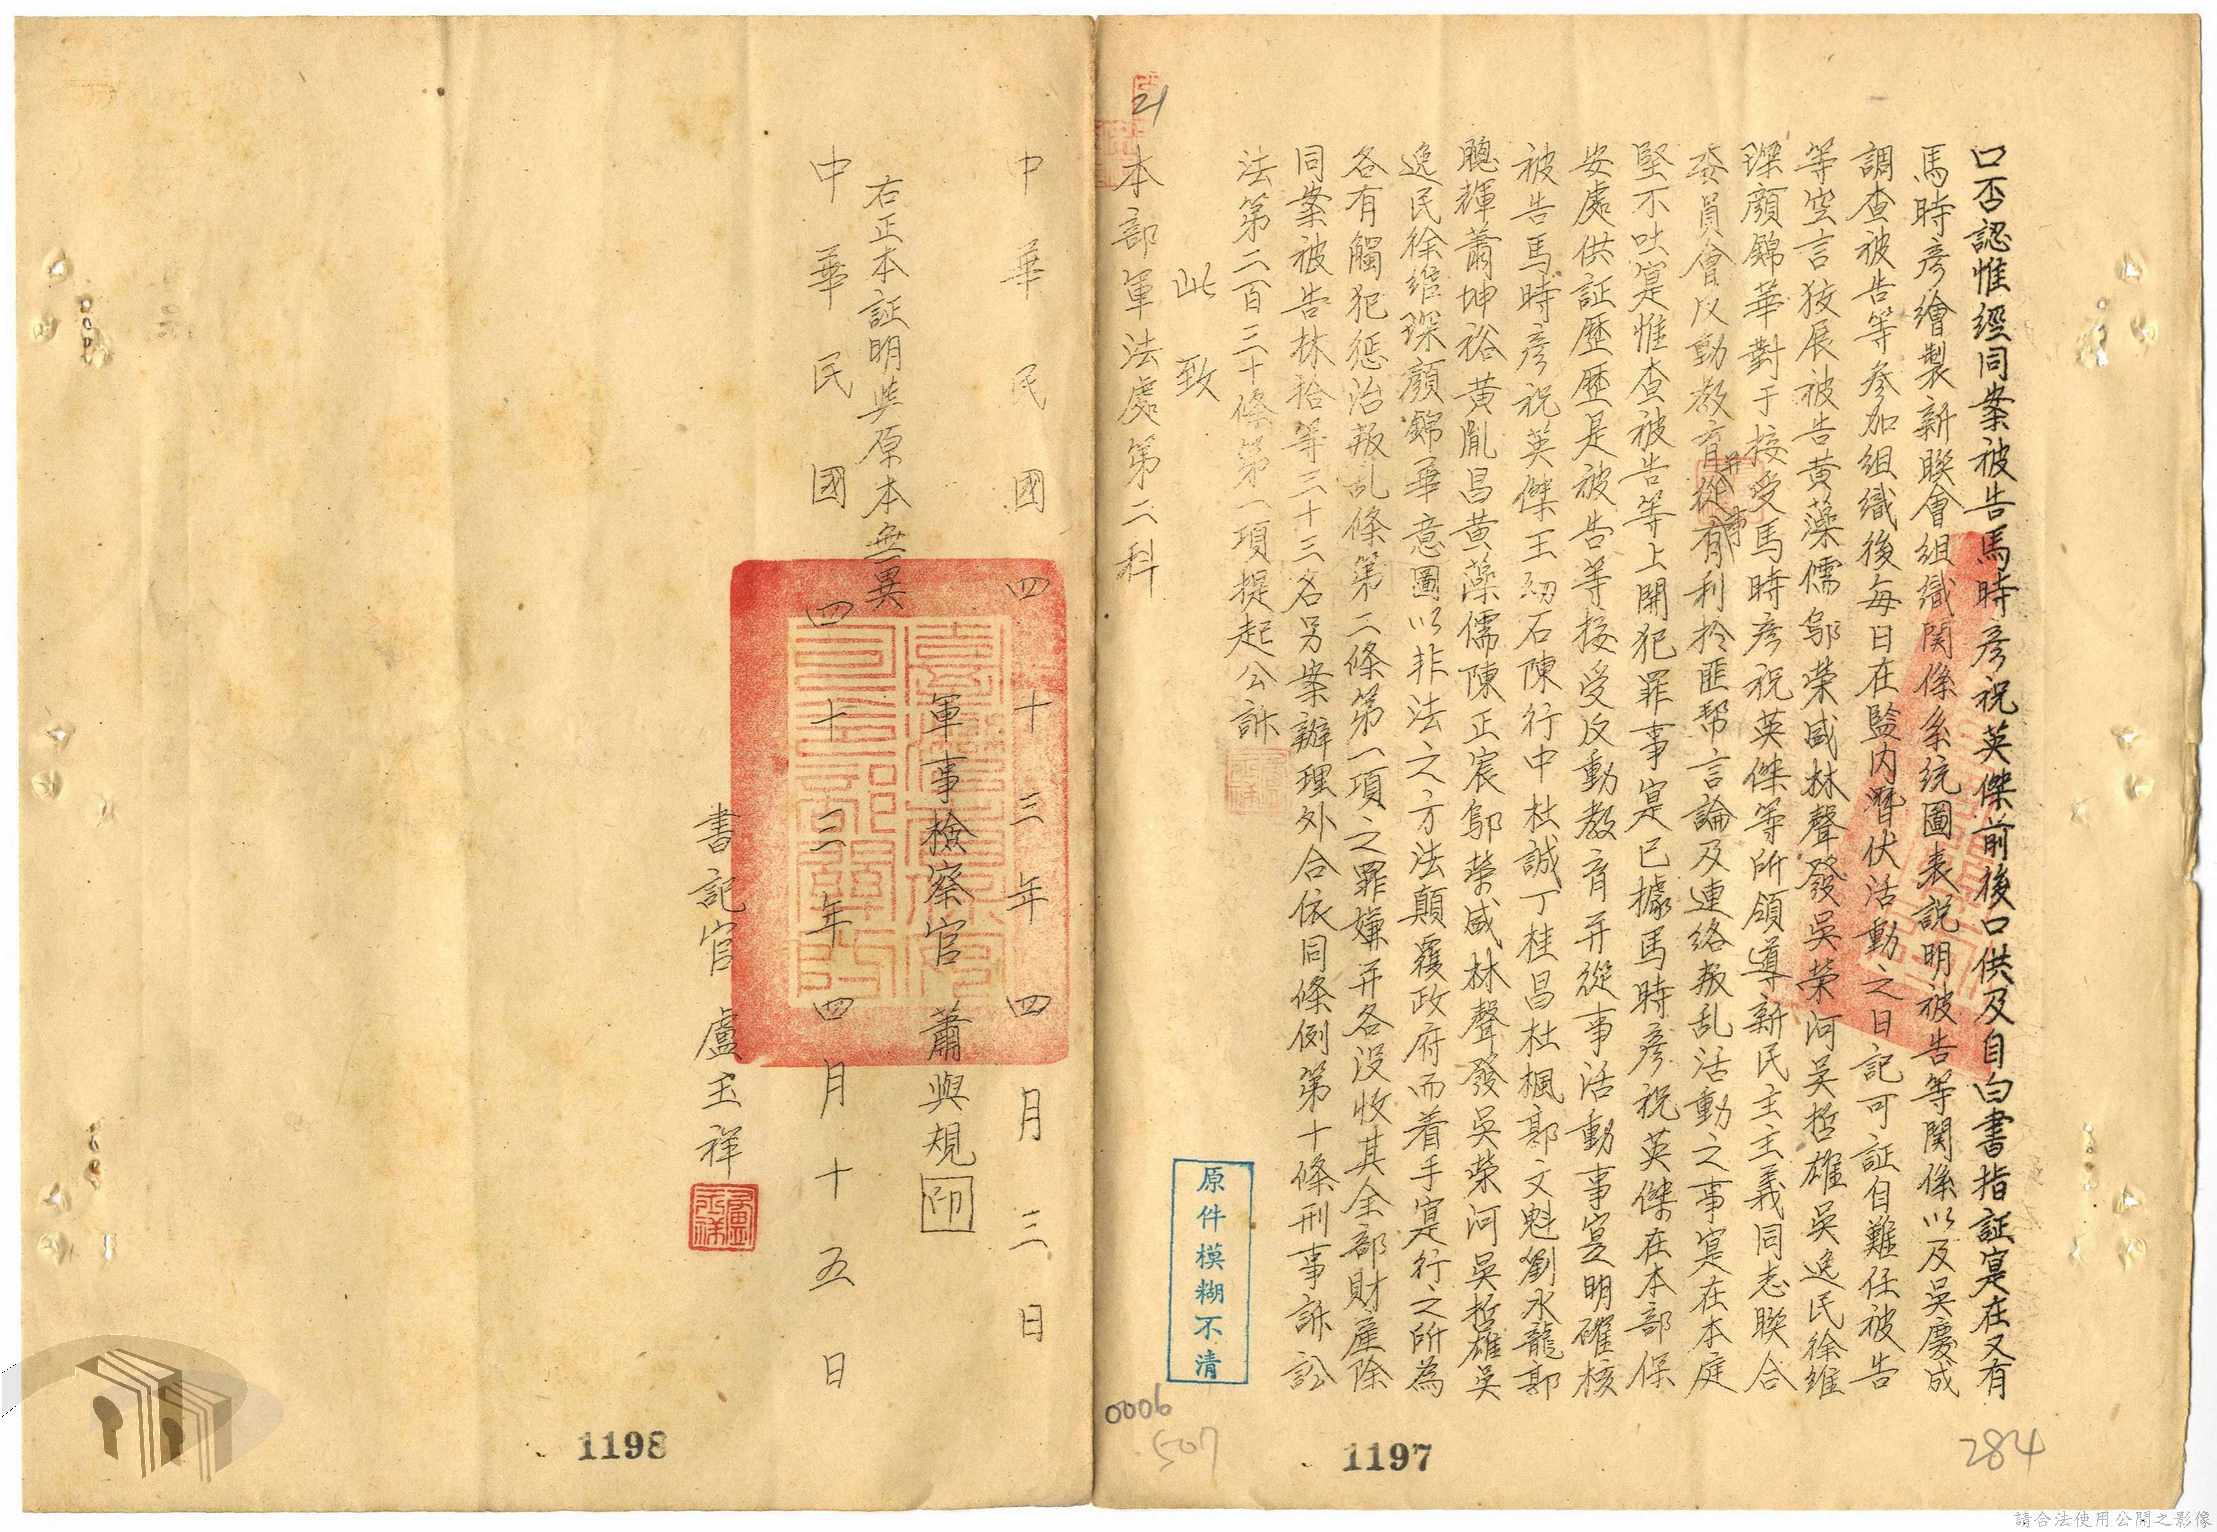 口否認惟經同案被告馬時彥祝英傑前後口供及自白書指証寔在又有
馬時彥繪製新聯會組織関係系統圖表説明被告等関係以及吳慶成
調查被告等參加組織後每日在監内潛伏活動之日記可証自難任被告
等空言狡展被告黃藻儒鄔榮盛林聲發吳榮河吳哲雄吳逸民徐維
琛顏錦華對于接受馬時彥祝英傑等所領導新民主主義同志聯合
委員會反動教育并從事有利於匪幫言論及連絡叛乱活動之事寔在本庭
堅不吐寔惟查被告等上開犯罪事寔已據馬時彥祝英傑在本部保
安處供証歷歷是被告等接受反動教育并從事活動事寔明確核
被告馬時彥祝英傑王幼石陳行中杜誠丁桂昌杜楓郭文魁劉水龍郭
聰輝蕭坤裕黃胤昌黃藻儒陳正宸鄔榮盛林聲發吳榮河吳哲雄吳
逸民徐維琛顏錦華意圖以非法之方法顛覆政府而着手寔行之所為
各有觸犯惩治叛乱條第二條第一項之罪嫌并各没收其全部財產除
同案被告林拾等三十三名另案辦理外合依同條例第十條刑事訴訟
法第二百三十條第一項提起公訴
此致
本部軍法處第二科
21
中華民國四十三年四月三日
軍事檢察官 蕭與規 印
右正本証明與原本無異
中華民國四十三年四月十五日
書記官 盧玉祥
原件模糊不清
0006
507
1197
284
1198
請合法使用公開之影像